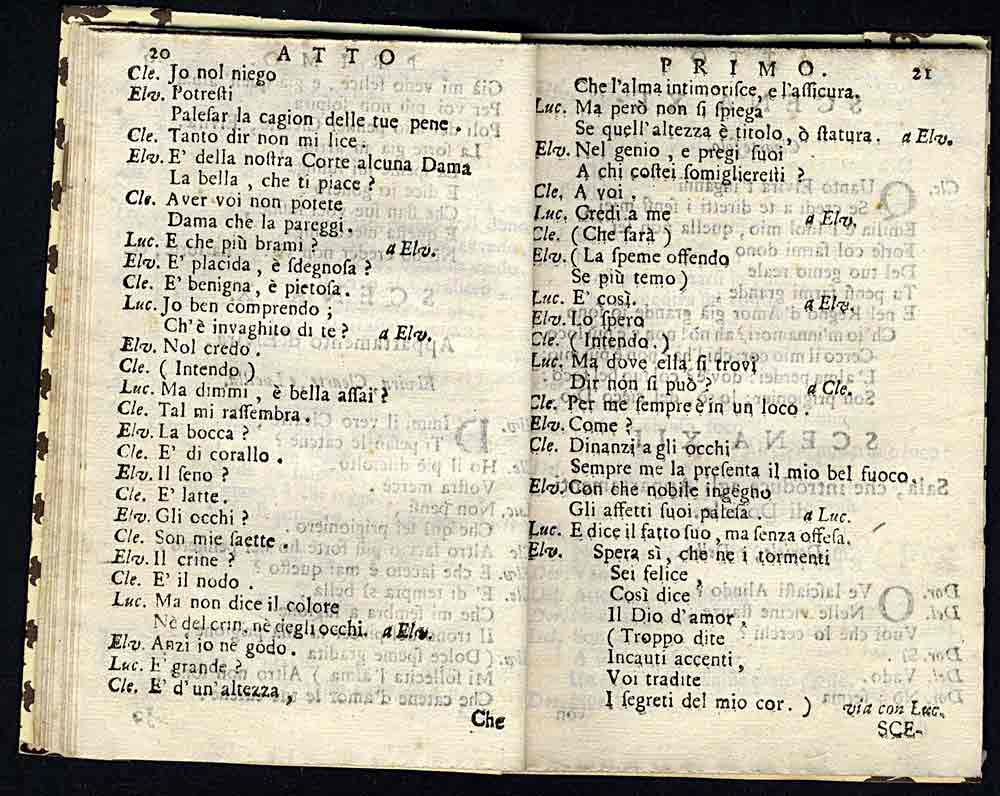 20 ATTO
Cle. Jo nol niego
Elv. Potreſti
Paleſar la cagion delle tue pene.
Cle. Tanto dir non mi lice.
Elv. E' della noſtra Corte alcuna Dama
La bella, che ti piace?
Cle. Aver voi non potete
Dama che la pareggi.
Luc. E che più brami? a Elv.
Elv. E' placida, è ſdegnoſa?
Cle. E' benigna, è pietoſa.
Luc. Jo ben comprendo;
Ch'è invaghito di te? a Elv.
Elv. Nol credo.
Cle. (Intendo)
Luc. Ma dimmi, è bella aſſai?
Cle. Tal mi raſſembra.
Elv. La bocca?
Cle. E' di corallo.
Elv. Il ſeno?
Cle. E' latte.
Elv. Gli occhi?
Cle. Son mie ſaette.
Elv. Il crine?
Cle. E' il nodo.
Luc. Ma non dice il colore
Nè del crin, nè degli occhi. a Elv.
Elv. Anzi io nè godo.
Luc. E' grande?
Cle. E' d'un'altezza,
Che
PRIMO. 21
Che l'alma intimoriſce, e l'aſſicura.
Luc. Ma però non ſi ſpiega
Se quell'altezza è titolo, ò ſtatura. a Elv.
Elv. Nel genio, e pregi ſuoi
A chi coſtei ſomigliereſti?
Cle. A voi.
Luc. Credi a me a Elv.
Cle. (Che ſarà)
Elv. (La ſpeme offendo
Se più temo)
Luc. E' così. a Elv.
Elv. Lo ſpero
Cle. (Intendo.)
Luc. Ma dove ella ſi trovi
Dir non ſi può? a Cle.
Cle. Per me ſempre è in un loco.
Elv. Come?
Cle. Dinanzi a gli occhi
Sempre me la preſenta il mio bel fuoco.
Elv. Con che nobile ingegno
Gli affetti ſuoi paleſa. a Luc.
Luc. E dice il fatto ſuo, ma ſenza offeſa.
Elv. Spera sì, che ne i tormenti
Sei felice,
Così dice
Il Dio d'amor,
(Troppo dite
Incauti accenti,
Voi tradite
I ſegreti del mio cor.) via con Luc.
SCE-